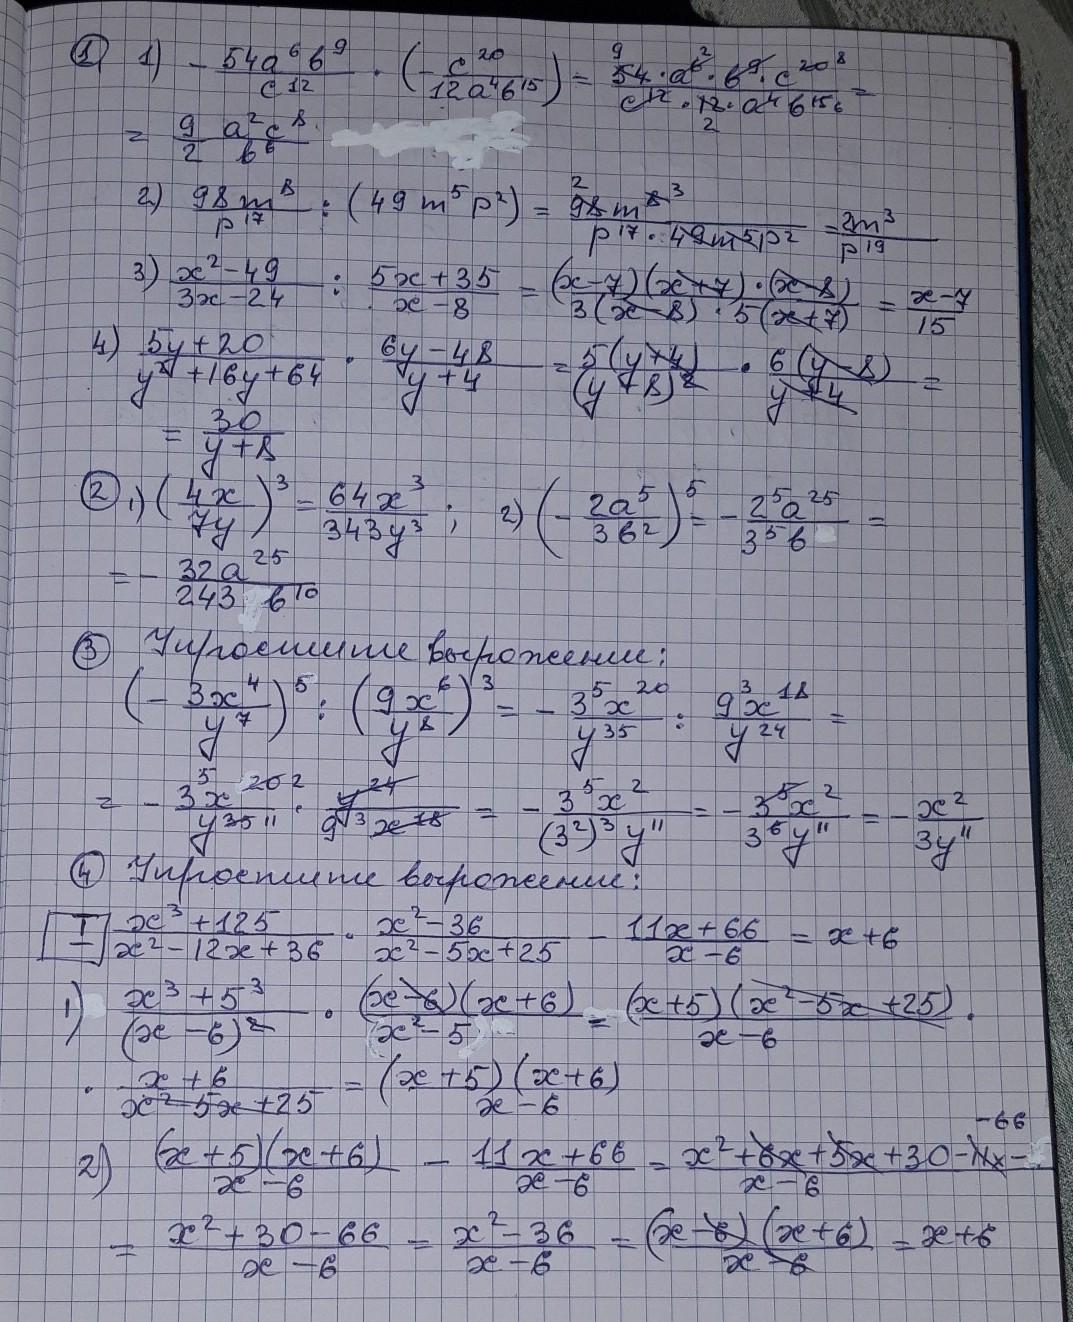 ① 1) - 54a⁶b⁹/c¹² · (- c²⁰/12a⁴b¹⁵) = 9 54·a⁶ ²·b⁹·c²⁰ ⁸/c¹²·12·a⁴b¹⁵ ⁶ 2 =
= 9/2 a²c⁸/b⁶
2) 98m⁸/p¹⁷ : (49m⁵p²) = 2 98m⁸ ³/p¹⁷·49m⁵p² = 2m³/p¹⁹
3) x²-49/3x-24 : 5x+35/x-8 = (x-7)(x+7)·(x-8)/3(x-8)·5(x+7) = x-7/15
4) 5y+20/y²+16y+64 · 6y-48/y+4 = 5(y+4)/(y+8)² · 6(y-8)/y+4 =
= 30/y+8
② 1) (4x/7y)³ = 64x³/343y³ ; 2) (- 2a⁵/3b²)⁵ = - 2⁵a²⁵/3⁵b =
= - 32a²⁵/243 b¹⁰
③ Упростите выражение:
(- 3x⁴/y⁷)⁵ : (9x⁶/y⁸)³ = - 3⁵x²⁰/y³⁵ : 9³x¹⁸/y²⁴ =
= - 3⁵x²⁰ ²/y³⁵ ¹¹ · y²⁴/9³x¹⁸ = - 3⁵x²/(3²)³y¹¹ = - 3⁵x²/3⁶y¹¹ = - x²/3y¹¹
④ Упростите выражение:
I x³+125/x²-12x+36 · x²-36/x²-5x+25 - 11x+66/x-6 = x+6
1) x³+5³/(x-6)² · (x-6)(x+6)/(x²-5) = (x+5)(x²-5x+25)/x-6 ·
· x+6/x²-5x+25 = (x+5)(x+6)/x-6
2) (x+5)(x+6)/x-6 - 11x+66/x-6 = x²+6x+5x+30-11x-66/x-6
= x²+30-66/x-6 = x²-36/x-6 = (x-6)(x+6)/x-6 = x+6